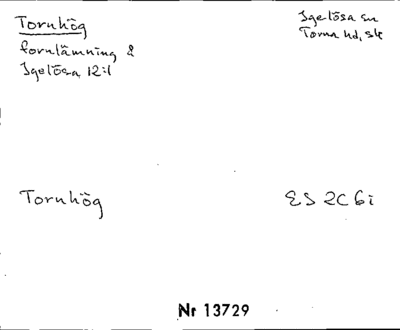 Tornhög
Igelösa sn
fornlämning å
Torna hd, Sk
Igelösa 12:1
Tornhög
ES 2C 6i
Nr 13729